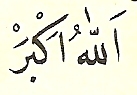 اَللّٰهُ اَكْبَرْ